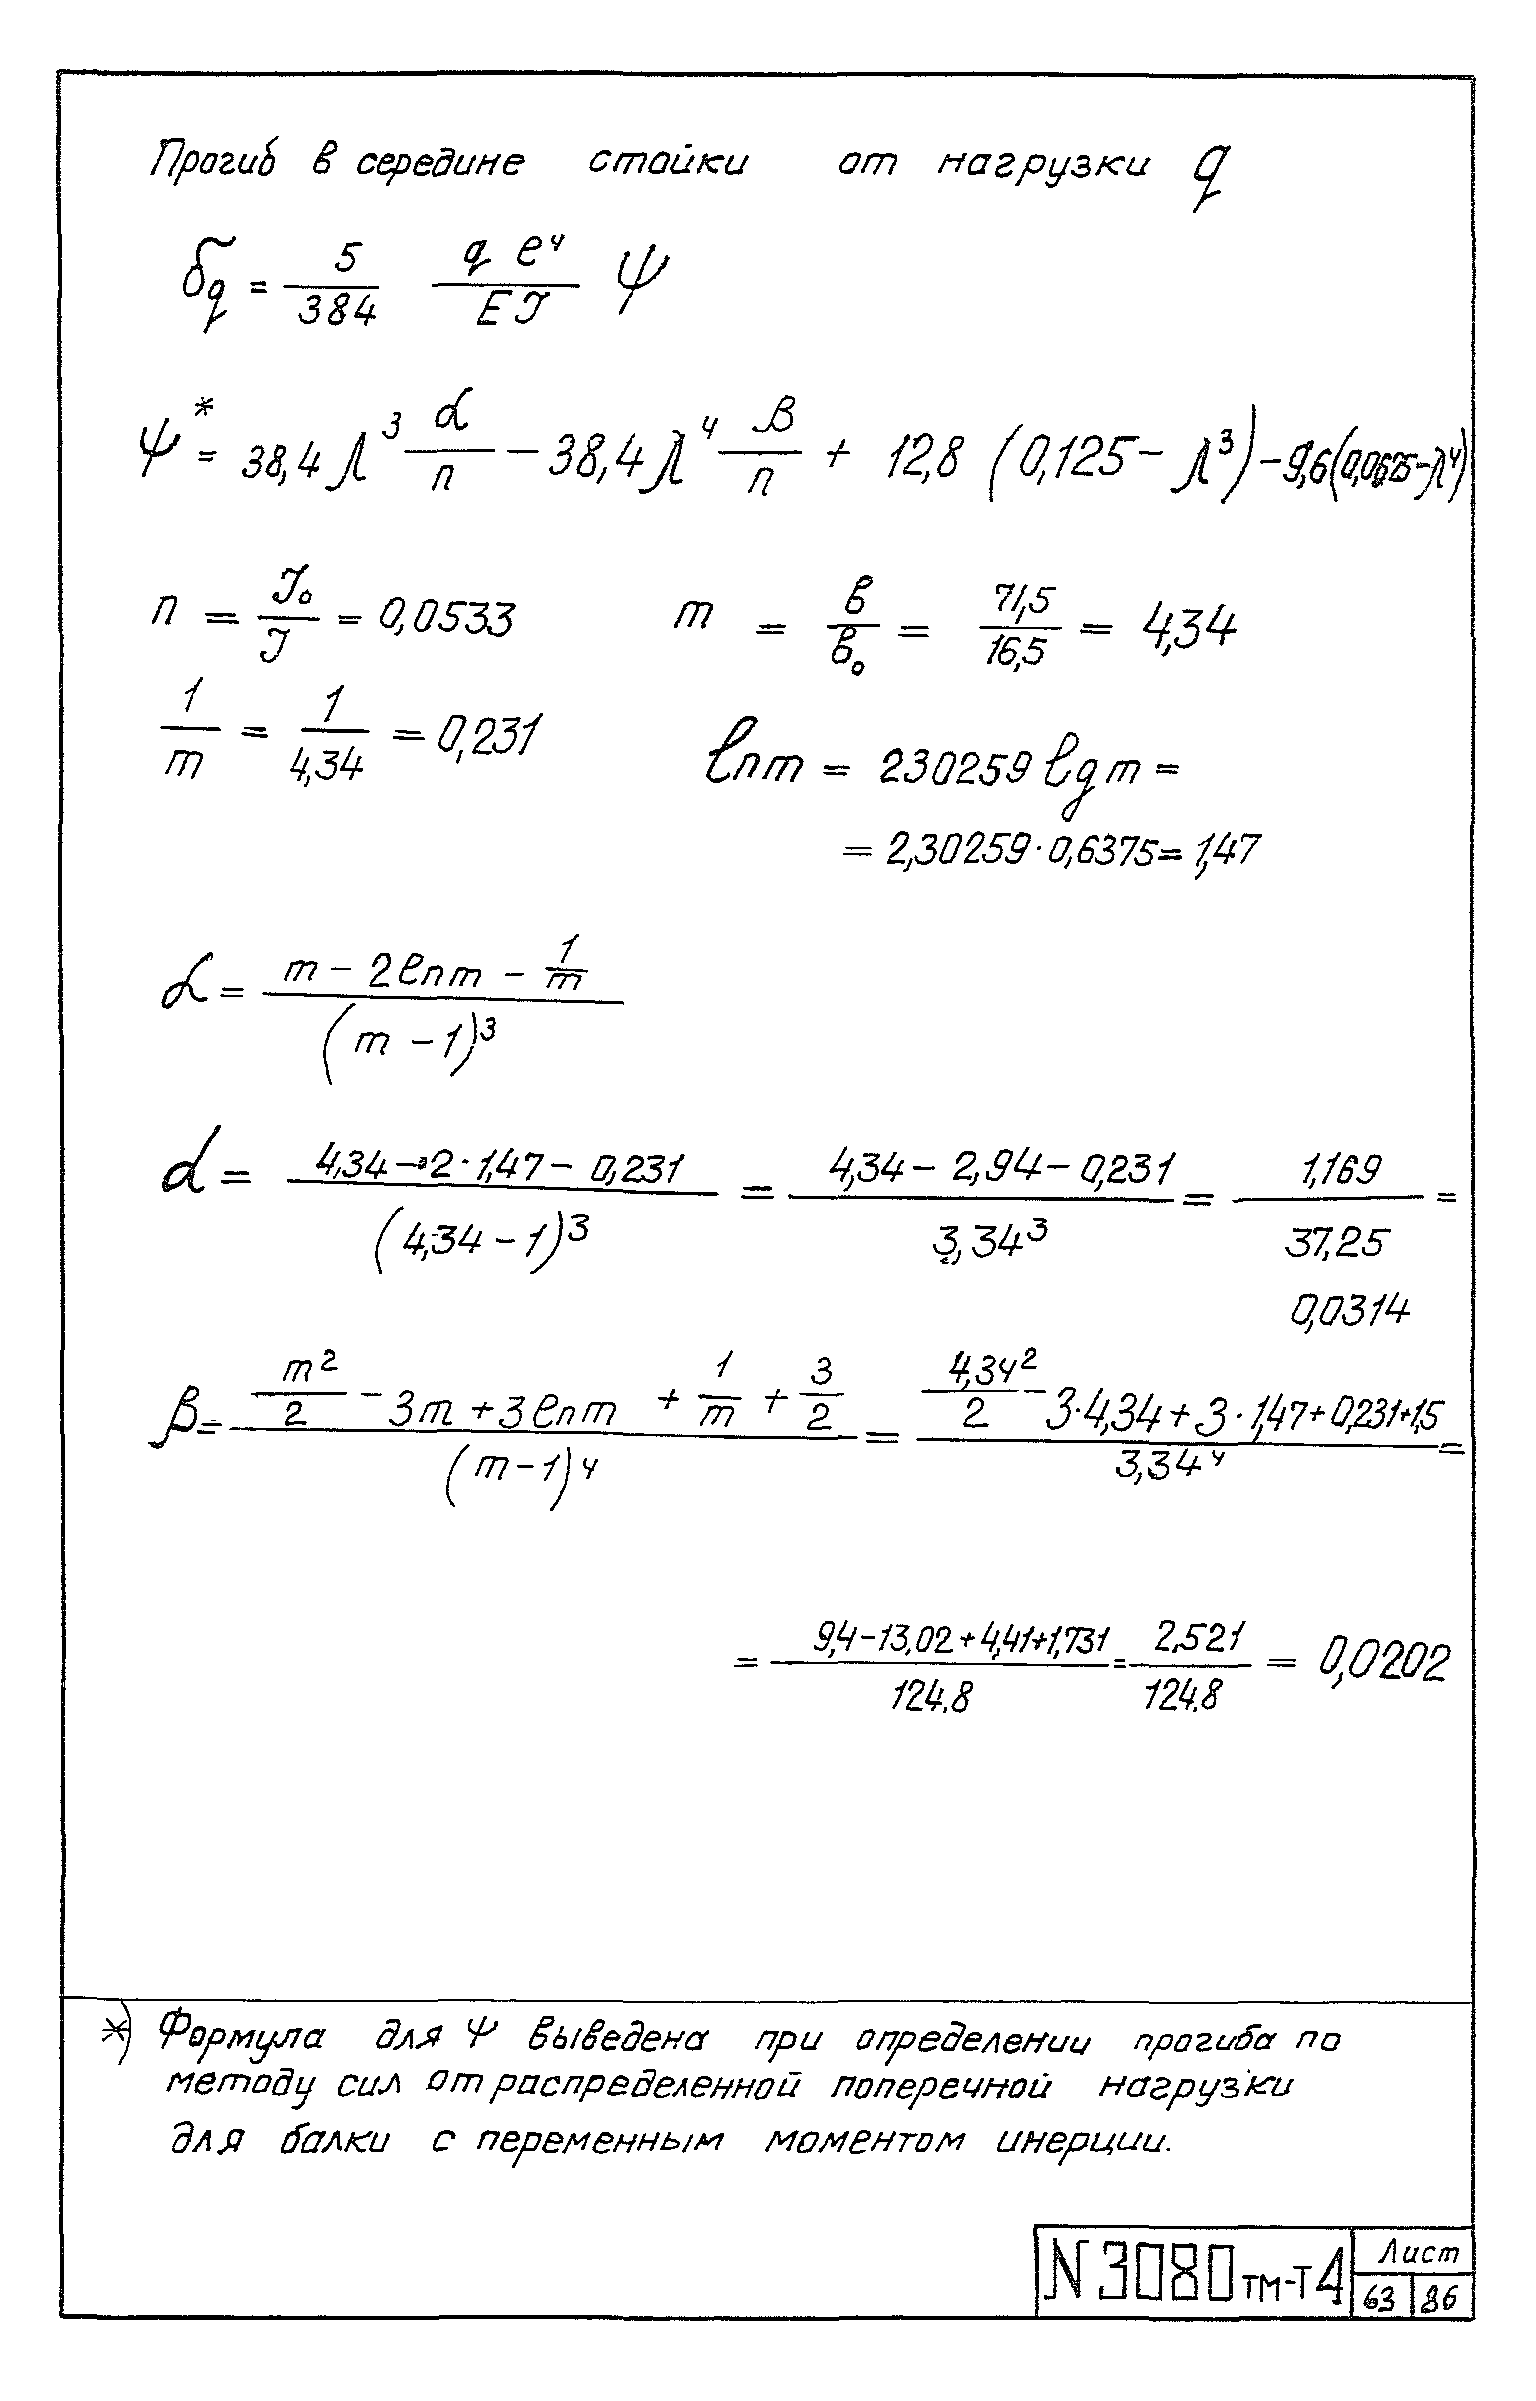 Прогиб в середине стойки от нагрузки q
δq = 5/384 qℓ⁴/EJ ψ
ψ* = 38,4 λ³ α/n − 38,4 λ⁴ β/n + 12,8 (0,125 − λ³) − 9,6(0,0625−λ⁴)
n = J₀/J = 0,0533 m = в/в₀ = 71,5/16,5 = 4,34
1/m = 1/4,34 = 0,231
ℓnm = 230259 ℓgm =
= 2,30259·0,6375 = 1,47
α = (m − 2ℓnm − 1/m)/(m − 1)³
α = (4,34 − 2·1,47 − 0,231)/(4,34 − 1)³ = (4,34 − 2,94 − 0,231)/3,34³ = 1,169/37,25 =
0,0314
β = (m²/2 − 3m + 3ℓnm + 1/m + 3/2)/(m−1)⁴ = (4,34²/2 − 3·4,34 + 3·1,47 + 0,231 + 1,5)/3,34⁴ =
= (9,4−13,02+4,41+1,731)/124.8 = 2,521/124,8 = 0,0202
*) Формула для ψ выведена при определении прогиба по
методу сил от распределенной поперечной нагрузки
для балки с переменным моментом инерции.
N3080тм-т4 Лист
63 86